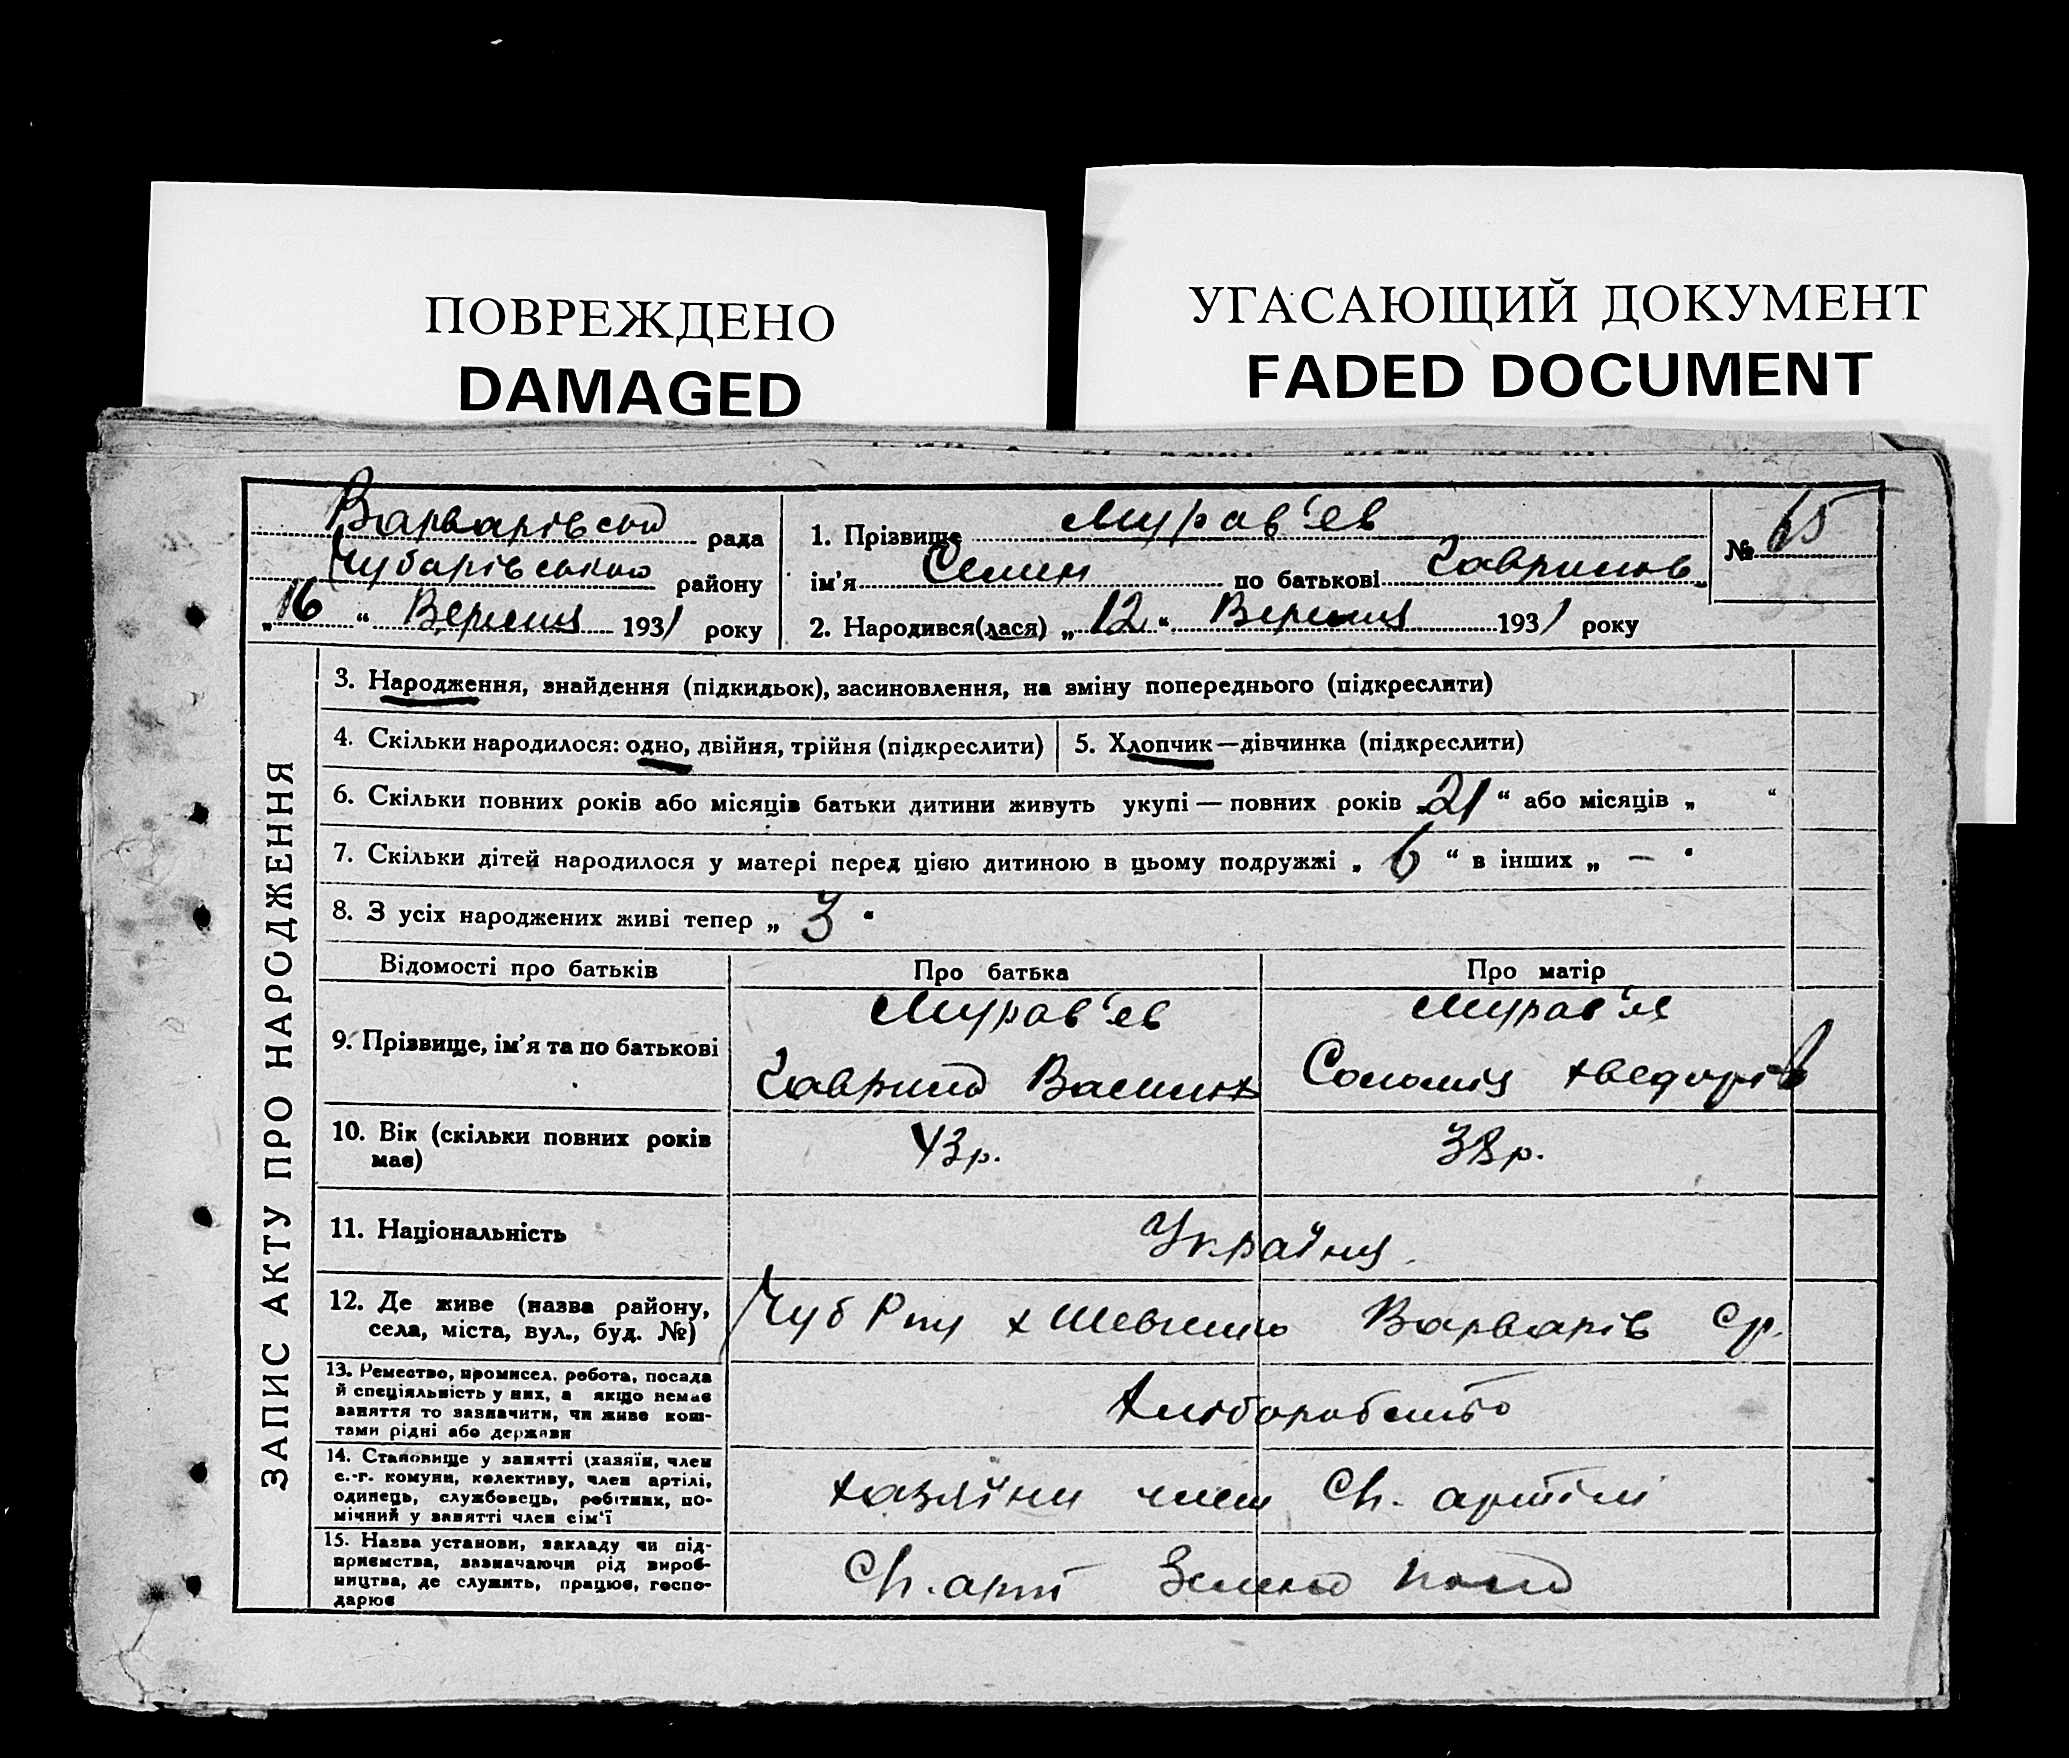 ПОВРЕЖДЕНО
DAMAGED
УГАСАЮЩИЙ ДОКУМЕНТ
FADED DOCUMENT
ЗАПИС АКТУ ПРО НАРОДЖЕННЯ
Варварівська рада
Чубарівського району
„16“ Вересня 1931 року
1. Прізвище Мурав'ев
ім'я Семен по батькові Гаврилов
№ 65
2. Народився(лася) „12“ Вересня 1931 року
3. Народження, знайдення (підкидьок), засиновлення, на зміну попереднього (підкреслити)
4. Скільки народилося: одно, двійня, трійня (підкреслити)
5. Хлопчик—дівчинка (підкреслити)
6. Скільки повних років або місяців батьки дитини живуть укупі — повних років „21“ або місяців „ “
7. Скільки дітей народилося у матері перед цією дитиною в цьому подружжі „6“ в інших „—“
8. З усіх народжених живі тепер „3“
Відомості про батьків
Про батька
Про матір
9. Прізвище, ім'я та по батькові
Мурав'ев
Гаврило
Мурав'
Соломія Хведорів
10. Вік (скільки повних років має)
43 р.
38 р.
11. Національність
Українці
12. Де живе (назва району, села, міста, вул., буд. №)
Чуб Р-ну х Шевченко Варварів Ср.
13. Ремество, промисел, робота, посада
й спеціяльність у них, а якщо немає
заняття то зазначити, чи живе кош-
тами рідні або держави
Хліборобство
14. Становище у занятті (хазяїн, член
с.-г. комуни, колективу, член артілі,
одинець, службовець, робітник, по-
мічний у занятті член сім'ї
хазяїни член Сг. артілі
15. Назва установи, закладу чи під-
приємства, зазначаючи рід вироб-
ництва, де служить, працює, госпо-
дарює
Сг. арт